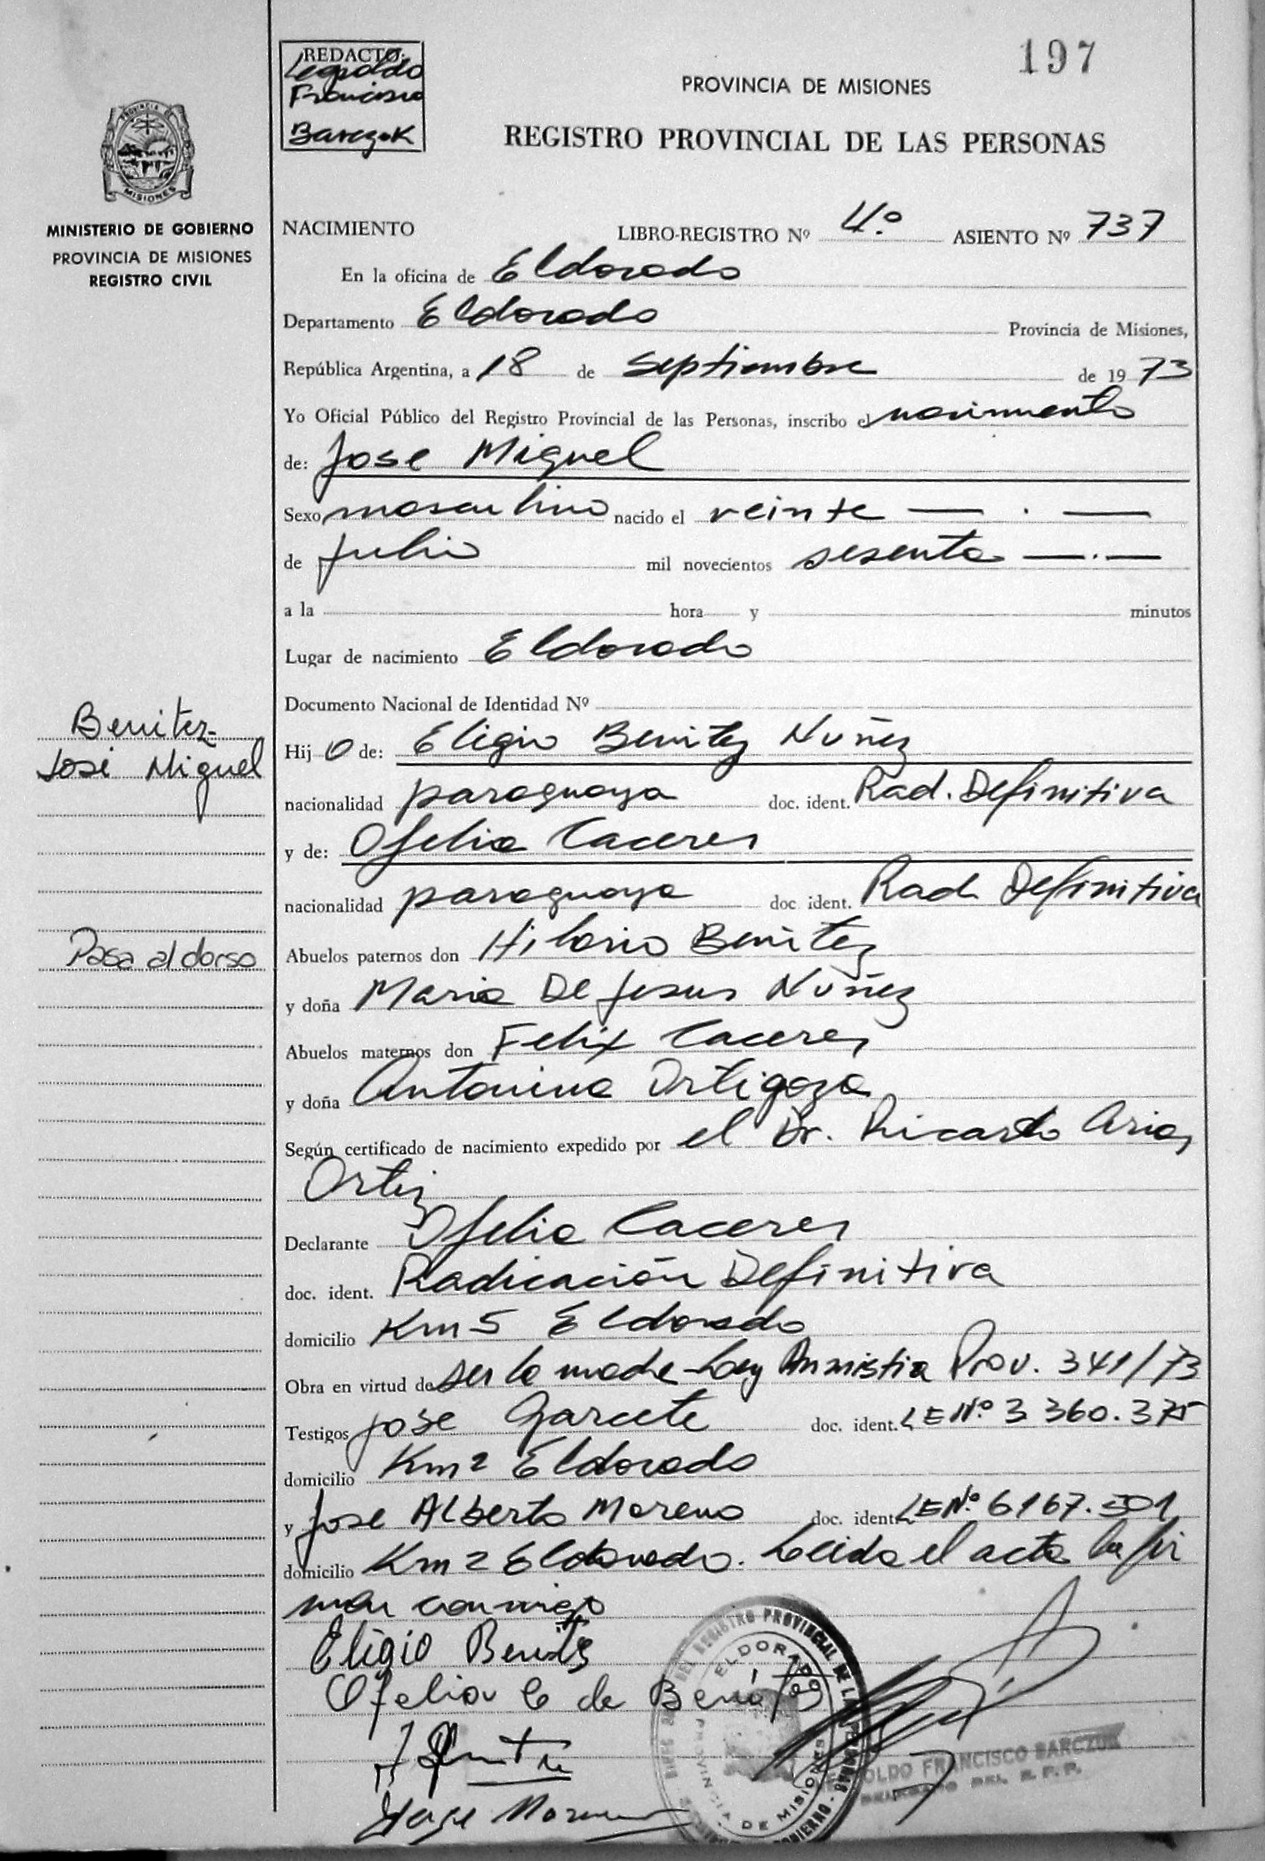 197
REDACTO:
Leopoldo
Francisco
Barczuk
PROVINCIA DE MISIONES
REGISTRO PROVINCIAL DE LAS PERSONAS
PROVINCIA DE
MISIONES
MINISTERIO DE GOBIERNO
PROVINCIA DE MISIONES
REGISTRO CIVIL
NACIMIENTO LIBRO-REGISTRO Nº 4º ASIENTO Nº 737
En la oficina de Eldorado
Departamento Eldorado Provincia de Misiones,
República Argentina, a 18 de septiembre de 1973
Yo Oficial Público del Registro Provincial de las Personas, inscribo el nacimiento
de: Jose Miguel
Sexo masculino nacido el veinte — . —
de julio mil novecientos sesenta —.—
a la hora y minutos
Lugar de nacimiento Eldorado
Documento Nacional de Identidad Nº
Benitez
José Miguel
Hijo de: Eligio Benitez Nuñez
nacionalidad paraguaya doc. ident. Rad. Definitiva
y de: Ofelia Caceres
nacionalidad paraguaya doc. ident. Rad Definitiva
Pasa al dorso
Abuelos paternos don Hilario Benitez
y doña Maria De Jesus Nuñez
Abuelos maternos don Felix Caceres
y doña Antonina Ortigoza
Según certificado de nacimiento expedido por el Dr. Ricardo Arias
Ortiz
Declarante Ofelia Caceres
doc. ident. Radicación Definitiva
domicilio Km 5 Eldorado
Obra en virtud de ser la madre-Ley Amnistia Prov. 341/73
Testigos jose Garcete doc. ident. LE Nº 3 360.375
domicilio Km 2 Eldorado
y Jose Alberto Moreno doc. ident. LE Nº 6167.501
domicilio Km 2 Eldorado. Leida el acta la fir
man conmigo
Eligio Benites
Ofelia C de Benitez
Jorge Moreno
REGISTRO PROVINCIAL DE LAS PERSONAS
ELDORADO
PROVINCIA DE MISIONES
LEOPOLDO FRANCISCO BARCZUK
DELEGADO DEL R. P. P.